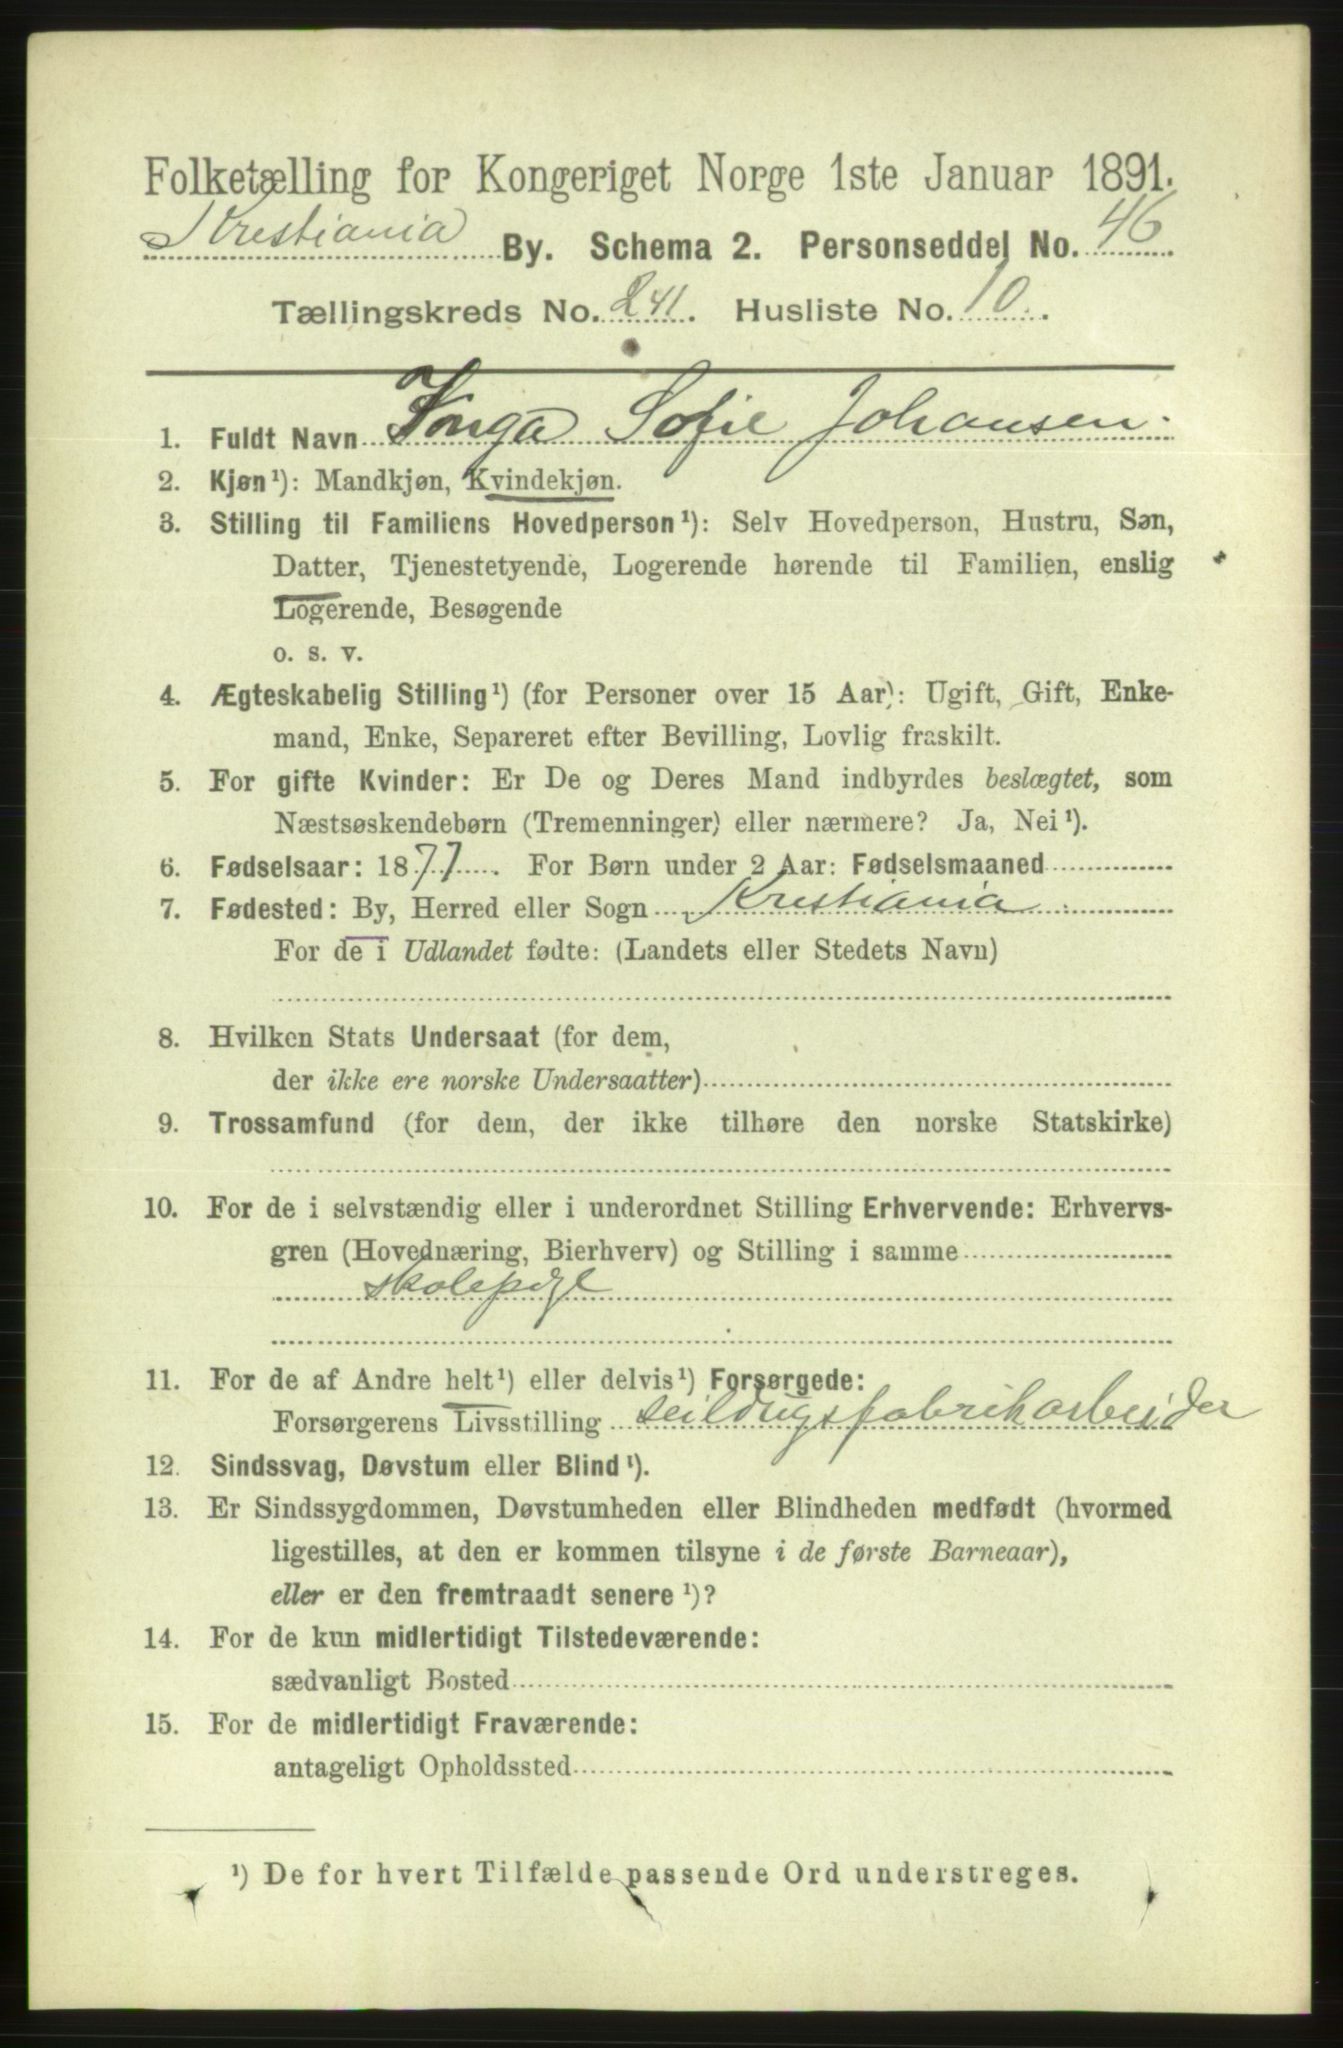 Folketælling for Kongeriget Norge 1ste Januar 1891.
Kristiania By. Schema 2. Personseddel No. 46
Tællingskreds No. 241. Husliste No. 10.
1. Fuldt Navn Sofie Johansen.
2. Kjøn¹): Mandkjøn, Kvindekjøn.
3. Stilling til Familiens Hovedperson¹): Selv Hovedperson, Hustru, Søn,
Datter, Tjenestetyende, Logerende hørende til Familien, enslig
Logerende, Besøgende
o. s. v.
4. Ægteskabelig Stilling¹) (for Personer over 15 Aar): Ugift, Gift, Enke-
mand, Enke, Separeret efter Bevilling, Lovlig fraskilt.
5. For gifte Kvinder: Er De og Deres Mand indbyrdes beslægtet, som
Næstsøskendebørn (Tremenninger) eller nærmere? Ja, Nei¹).
6. Fødselsaar: 1877. For Børn under 2 Aar: Fødselsmaaned
7. Fødested: By, Herred eller Sogn Kristiania
For de i Udlandet fødte: (Landets eller Stedets Navn)
8. Hvilken Stats Undersaat (for dem,
der ikke ere norske Undersaatter)
9. Trossamfund (for dem, der ikke tilhøre den norske Statskirke)
10. For de i selvstændig eller i underordnet Stilling Erhvervende: Erhvervs-
gren (Hovednæring, Bierhverv) og Stilling i samme
skolepige
11. For de af Andre helt¹) eller delvis¹) Forsørgede:
Forsørgerens Livsstilling seildugsfabrikarbeider
12. Sindssvag, Døvstum eller Blind¹).
13. Er Sindssygdommen, Døvstumheden eller Blindheden medfødt (hvormed
ligestilles, at den er kommen tilsyne i de første Barneaar),
eller er den fremtraadt senere¹)?
14. For de kun midlertidigt Tilstedeværende:
sædvanligt Bosted
15. For de midlertidigt Fraværende:
antageligt Opholdssted
¹) De for hvert Tilfælde passende Ord understreges.